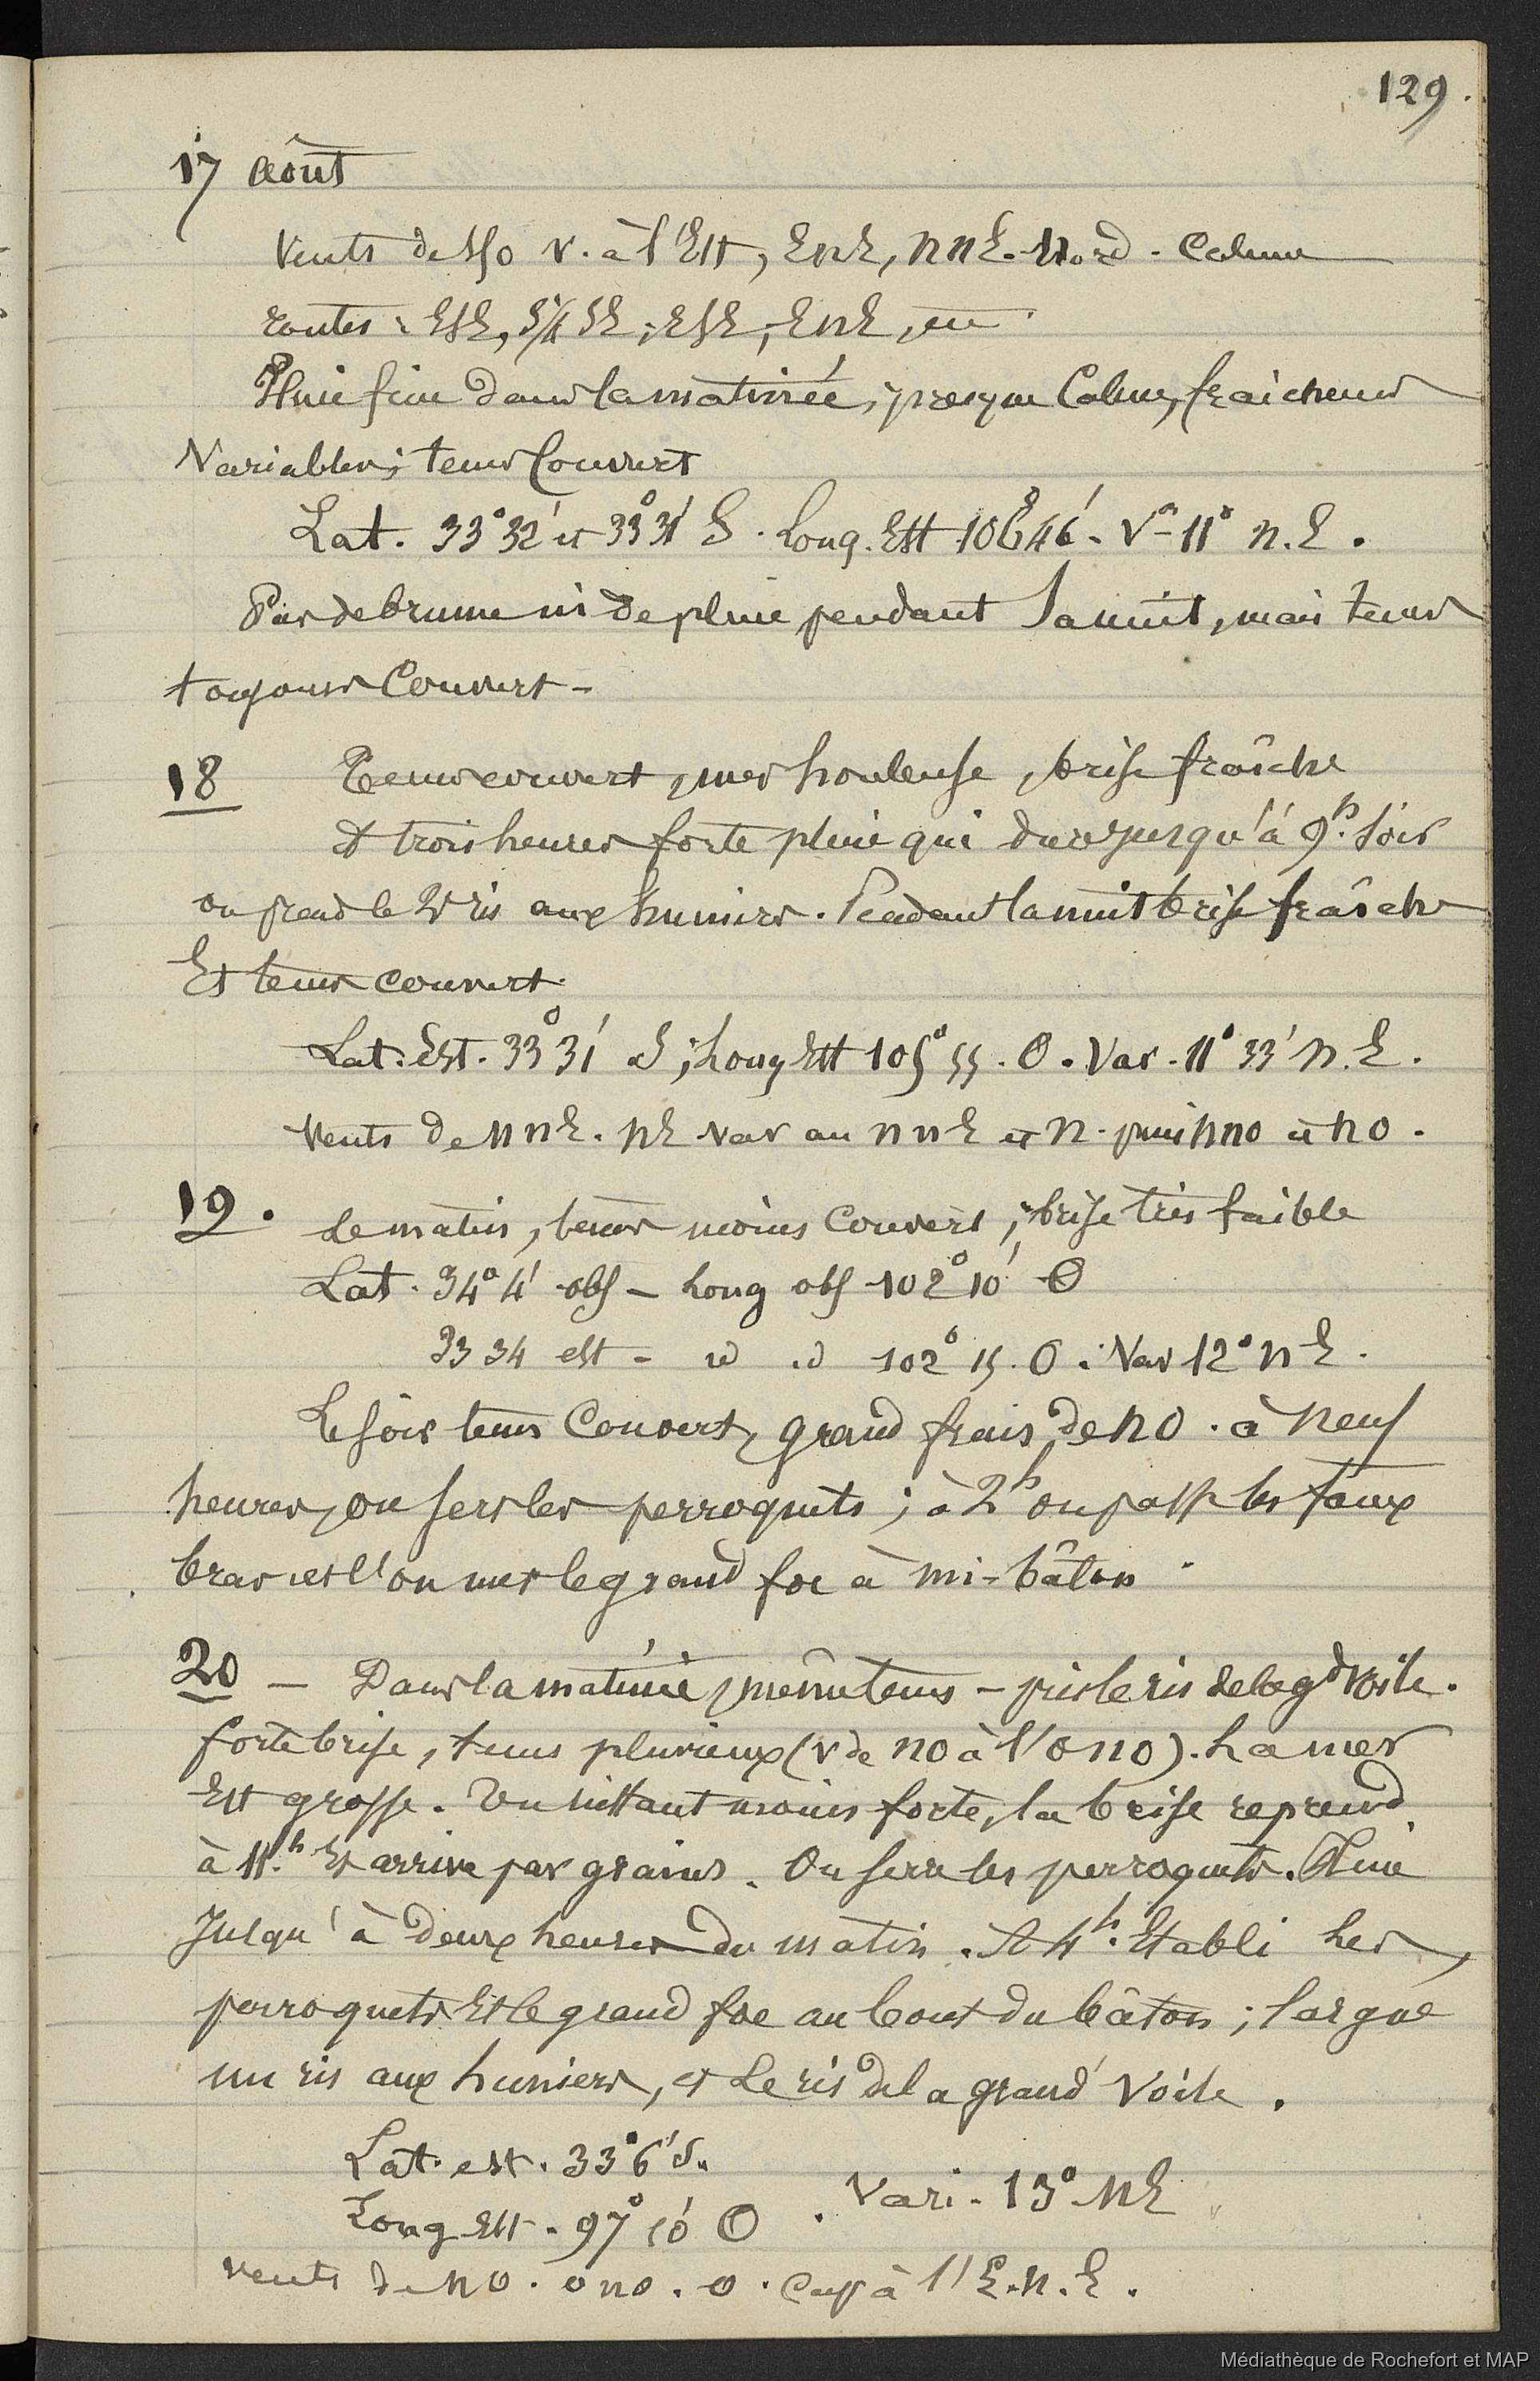 129.
17 août
Vents de SSO V. à l'Est, ENE, NNE. Nord - Calme
routes : ESE, S¼SE, ESE, ENE,
Pluie fine dans la matinée, presque Calme, fraicheurs
Variables; tems Couvert
Lat. 33° 32' et 33° 31' S. Long. Est 106° 46'. Von 11° N.E.
Pas de brume ni de pluie pendant la nuit, mais tems
toujours Couvert -
18 Tems couvert, mer houleuse, brise fraîche
A trois heures forte pluie qui dure jusqu'à 9h. soir
on prend le 2d ris aux huniers. Pendant la nuit brise fraîche
Et tems couvert.
Lat. Est. 33° 31' S; Long Est 105° 55. O. Var. 11° 33' N.E.
Vents de NNE. NE var au NNE et N. puis NNO et NO.
19. Le matin, tems moins Couvert; brise très faible
Lat. 34° 4' obs - Long obs 102° 10' O
33 34 est - id id 102° 15. O. Var 12° NE.
Le soir tems Couvert, grand frais de NO. à Neuf
heures, on serr les perroquets; à 2h on passe les faux
bras et l'on met le grand foc à mi-bâton.
20 - Dans la matinée, même tems - pris le ris de la gd voile.
forte brise, tems pluvieux (V de NO à l'ONO). La mer
Est grosse. Un instant moins forte, la brise reprend
à 11.h Et arrive par grains. On serre les perroquets. Pluie
Jusqu'à deux heures du matin. A 4h. Etabli les
perroquets Et le grand foc au bout du bâton; largué
un ris aux huniers, et Le ris de la grand' Voile.
Lat. est. 33° 6' S.
Long Est. 97° 10' O. Vari. 13° NE
Vents de NO. ONO. O. Cap à l'E.N.E.
Médiathèque de Rochefort et MAP